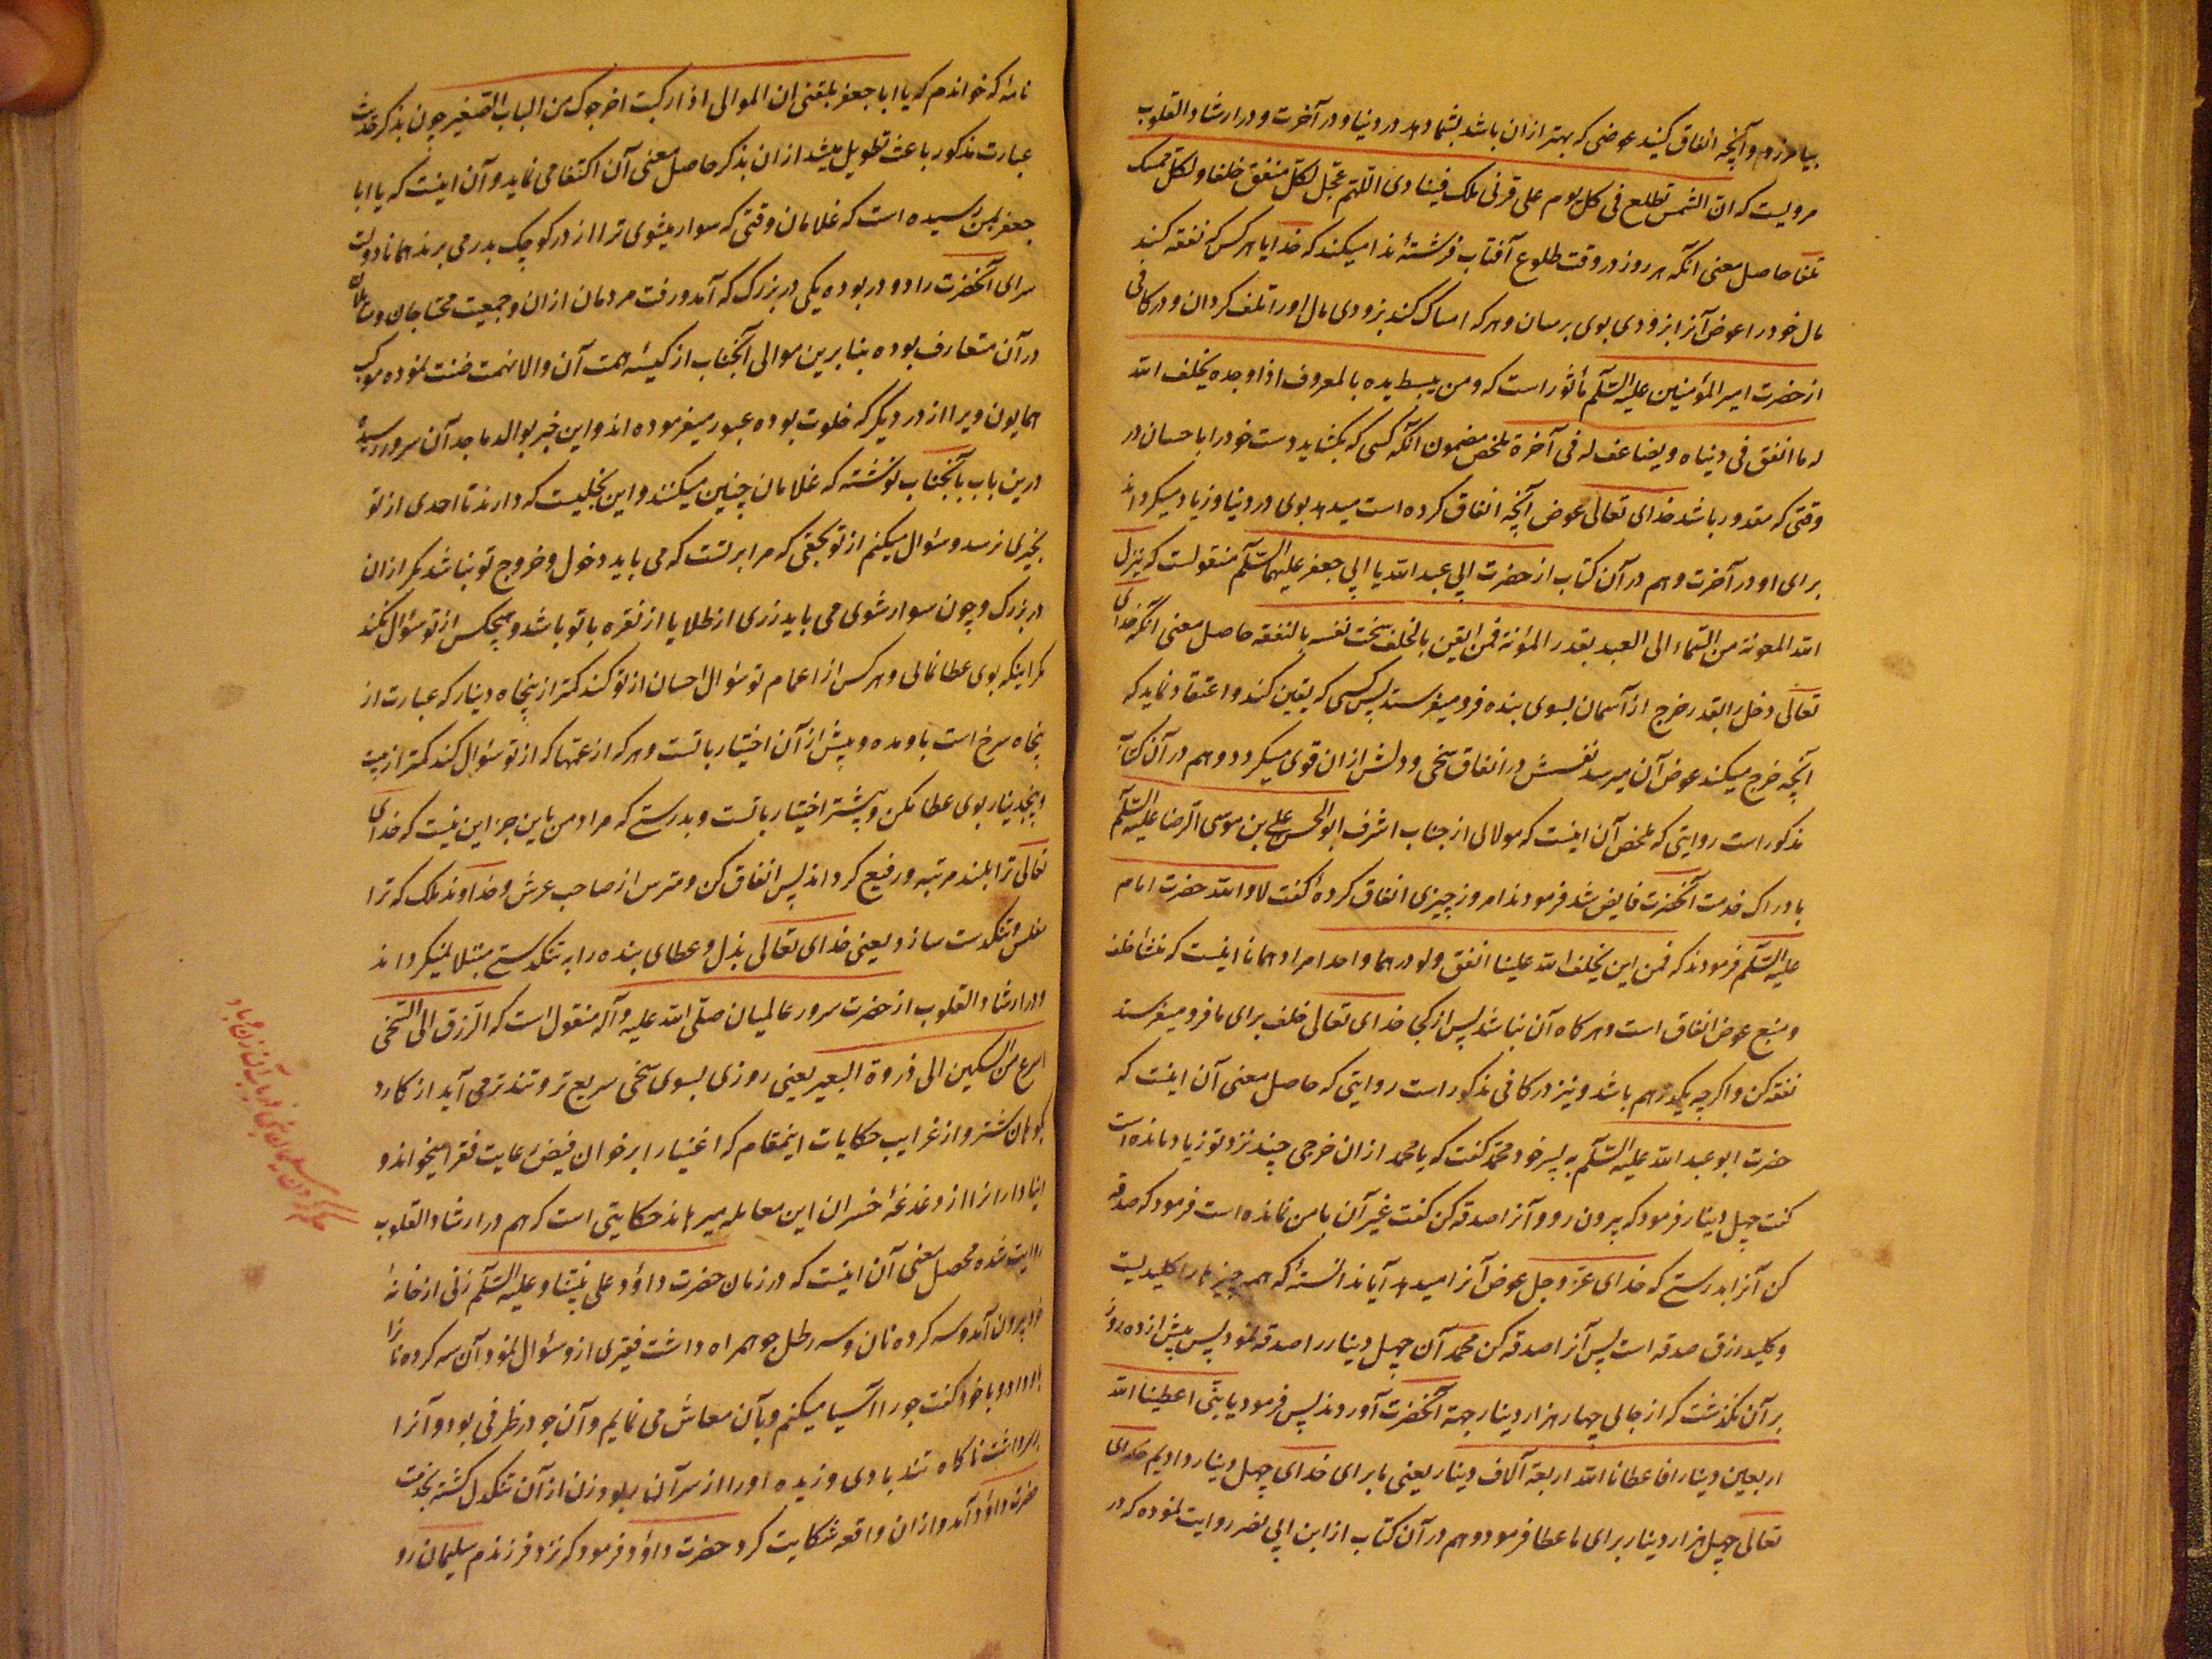 بیامرزم و آنچه انفاق کنید عوضی که بهتر ازان باشد بشما دهد در دنیا و در آخرت و در ارشاد القلوب
مرویست که ان الشمس تطلع فی کل یوم علی قرنی ملک فینادی اللّهم عجّل لکلّ منفق خلفا و لکلّ ممسک
تلفا حاصل معنی آنکه هر روز در وقت طلوع آفتاب فرشتهٔ ندا میکند که خدایا هر کس که نفقه کند
مال خود را عوض آنرا بزودی بوی برسان و هر که امساک کند بزودی مال او را تلف کردان و در کافی
از حضرت امیر المؤمنین علیه السّلم مأثور است که و من یبسط یده بالمعروف اذا وجده یخلف الله
له ما انفق فی دنیاه و یضاعف له فی آخرة ملخص مضمون آنکه کسی که بکشاید دست خود را باحسان در
وقتی که مقدور باشد خدای تعالی عوض آنچه انفاق کرده است میدهد بوی در دنیا و زیاد میکرداند
برای او در آخرت و هم در آن کتاب از حضرت ابی عبد الله یا ابی جعفر علیهما السّلم منقولست که ینزل
الله المعونة من السّماء الی العبد بقدر المؤنة فمن ایقن بالخلف سخت نفسه بالنفقه حاصل معنی آنکه خدای
تعالی دخل را بقدر خرج از آسمان بسوی بنده فرو میفرستد پس کسی که یقین کند و اعتقاد نماید که
آنچه خرج میکند عوض آن میرسد نفسش در انفاق سخی و دلش ازان قوی میکردد و هم در آن کتاب
مذکور است روایتی که ملخص آن اینست که مولائی از جناب اشرف ابو الحسن علی بن موسی الرضا علیه السّلم
بادراک خدمت آنحضرت فایض شد فرمودند امروز چیزی انفاق کردهٔ کفت لا و الله حضرت امام
علیه السّلم فرمودند که فمن این یخلف الله علینا انفق و لو درهما واحدا مراد همانا اینست که منشأ خلف
و منبع عوض انفاق است و هر کاه آن نباشد پس از کجا خدای تعالی خلف برای ما فرو میفرستد
نفقه کن و اکر چه یکدرهم باشد و نیز در کافی مذکور است روایتی که حاصل معنی آن اینست که
حضرت ابو عبد الله علیه السّلم به پسر خود محمّد کفت که یا محمد ازان خرجی چند نزد تو زیاد مانده است
کفت چهل دینار فرمود که بیرون رو و آنرا صدقه کن کفت غیر آن با من نمانده است فرمود که صدقه
کن آنرا بدرستی که خدای عزّ و جل عوض آنرا میدهد آیا ندانستهٔ که همه چیز را کلیدیست
و کلید رزق صدقه است پس آنرا صدقه کن محمد آن چهل دینار را صدقه نمود پس بیش از ده روز
بر آن نکذشت که از جائی چهار هزار دینار جهة آنحضرت آوردند پس فرمود یا بنیّ اعطینا الله
اربعین دینارا فاعطانا الله اربعة آلاف دینار یعنی ما برای خدای چهل دینار دادیم خدای
تعالی چهل هزار دینار برای ما عطا فرمود و هم در آن کتاب از ابن ابی نصر روایت نموده که در
نامهٔ که خواندم که یا ابا جعفر بلغنی ان الموالی اذا رکبت اخرجوک من الباب الصّغیر چون بذکر حدیث
عبارت مذکور باعث تطویل میشد ازان بذکر حاصل معنی آن اکتفا می نماید و آن اینست که یا ابا
جعفر بمن رسیده است که غلامان وقتی که سوار میشوی ترا از در کوچک بدر می برند همانا دولت
سرای آنحضرت را دو در بوده یکی در بزرک که آمد و رفت مردمان ازان و جمعیت محتاجان و سایلان
در آن متعارف بوده بنابرین موالی آنجناب از کیسه همت آن والا نهمت ضنت نموده موکب
همایون ویرا از در دیکر که خلوت بوده عبور میفرموده اند و این خبر بوالد ماجد آن سرور رسیده
درین باب بآنجناب نوشته که غلامان چنین میکنند و این بخلیست که دارند تا احدی از تو
بخیری نرسد و سئوال میکنم از تو بحقی که مرا بر تست که می باید دخول و خروج تو نباشد مکر ازان
در بزرک و چون سوار شوی می باید زری از طلا یا از نقره با تو باشد و هیچکس از تو سئوال نکند
مکر اینکه بوی عطا نمائی و هر کس از اعمام تو سئوال احسان از تو کند کمتر از پنجاه دینار که عبارت از
پنجاه سرخ است باو مده و بیش از آن اختیار با تست و هر که از عمتها که از تو سئوال کند کمتر از بیست
و پنجدینار بوی عطا مکن و بیشتر اختیار با تست و بدرستی که مراد من باین جز این نیست که خدای
تعالی ترا بلند مرتبه و رفیع کرداند پس انفاق کن و مترس از صاحب عرش و خداوند ملک که ترا
مفلس و تنکدست سازد یعنی خدای تعالی بذل و عطای بنده را به تنکدستی مبتلا نمیکرداند
و در ارشاد القلوب از حضرت سرور عالمیان صلّی الله علیه و آله منقول است که الرزق الی السّخی
اسرع من السکین الی ذروة البعیر یعنی روزی بسوی سخی سریع تر و تندتر می آید از کارد
بکوهان شتر و از غرایب حکایات اینمقام که اغنیا را بر خوان فیض رعایت فقرا میخواند و
را از دغدغهٔ خسران این معامله میرهاند حکایتی است که هم در ارشاد القلوب
روایت شده محصل معنی آن اینست که در زمان حضرت داود علی نبیّنا و علیه السّلم زنی از خانهٔ
خود بیرون آمد و سه کرده نان و سه رطل جو همراه داشت فقیری ازو سئوال نمود آن سه کرده نانرا
باو داد و با خود کفت جو را آسیا میکنم و بآن معاش می نمایم و آن جو در ظرفی بود و آنرا
بر سر داشت ناکاه تند بادی وزیده او را از سر آن ربود زن از آن تنکدل کشته بخدمت
حضرت داود آمد و ازان واقعه شکایت کرد حضرت داود فرمود که نزد فرزندم سلیمان رو